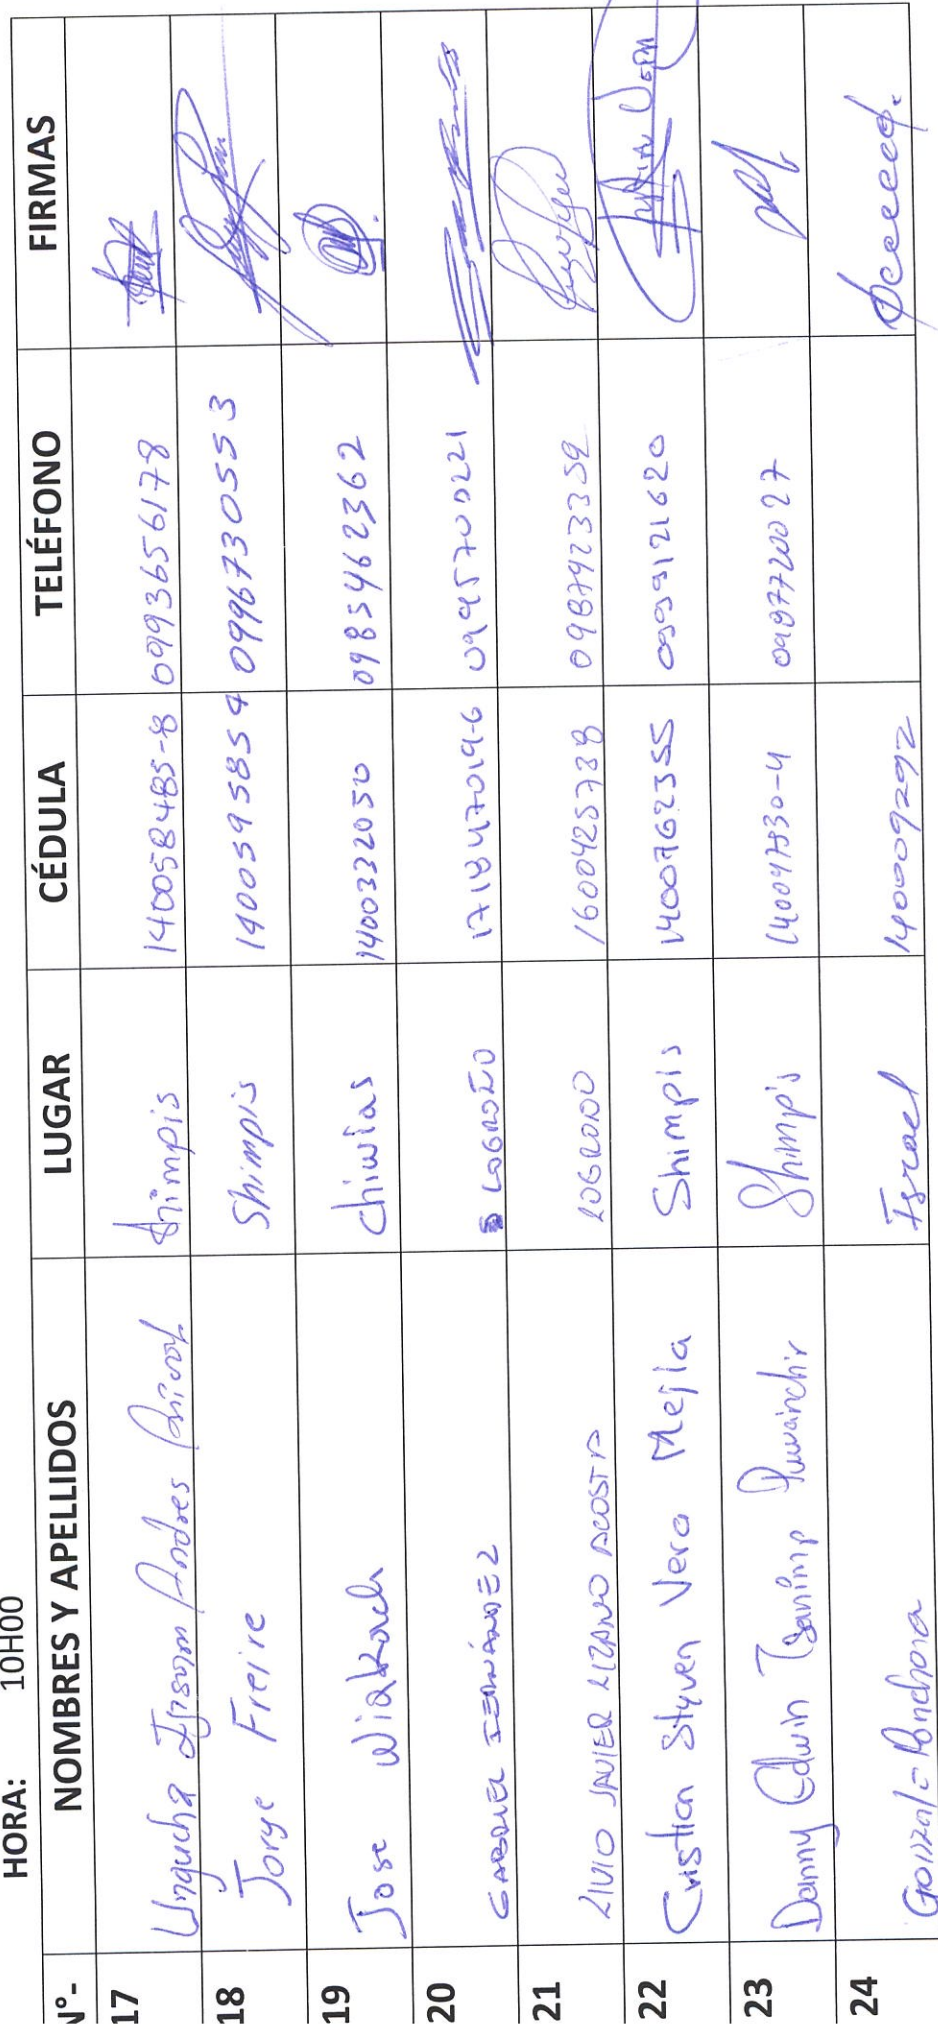 HORA: 10H00
N°.- NOMBRES Y APELLIDOS LUGAR CÉDULA TELÉFONO FIRMAS
17 Unqucha Andres Shimpis 140058485-8 0993656178
18 Jorge Freire Shimpis 1400595854 0996730553
19 Jose Wiakach Chiwias 1400332050 0985462362
20 GABRIEL LOGROÑO 171847019-6 0995700221
21 LIVIO JAVIER LIZANO ACOSTA LOGROÑO 1600425738 0987923352
22 Cristian Styven Vera Mejia Shimpis 1400762355 0999121620
23 Danny Edwin Tsanimp Puwainchir Shimpis 140047930-4 0987720027
24 Gonzalo Ponchora Israel 140009292